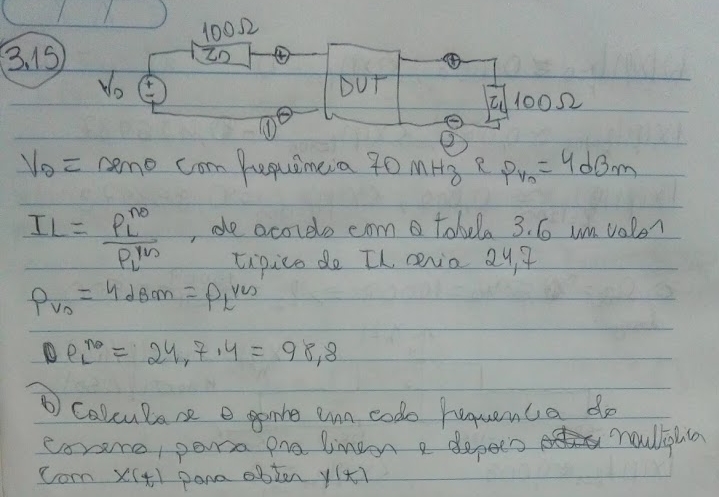 3.15
100Ω
ZD
V0
+
-
+
-
①
DUT
+
-
②
ZL
100Ω
V0 = seno com frequência 70 MHz e PV0 = 4 dBm
IL = PL^no / PL^yes , de acordo com a tabela 3.6 um valor
típico de IL seria 24,7
PV0 = 4 dBm = PL^yes
PL^no = 24,7 . 4 = 98,8
b) Calcula se o ganho em cada frequencia do
cosseno, passa pra linear e depois multiplica
com x(t) para obter y(t)